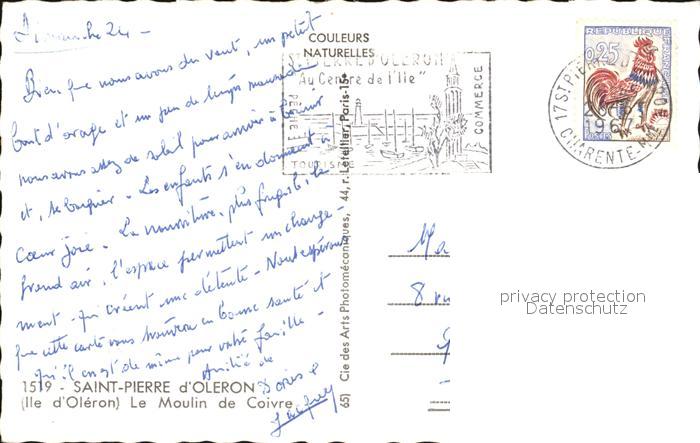 Dimanche 24 -
Bien que nous avons du vent, un petit
bout d'orage et un peu de temps maussade
nous avons assez de soleil pour arriver à brunir
et, se baigner. Les enfants s'en donnent à
Cœur joie. La nourriture, plus frugale, le
grand air, l'espace permettent un change-
ment - qui créent une détente - Nous espérons
que cette carte vous trouvera en bonne santé et
qu'il en est de même pour votre famille -
Amitié de
Doris &
Jacques
1519 - SAINT-PIERRE d'OLERON
(Ile d'Oléron) Le Moulin de Coivre
COULEURS
NATURELLES
65) Cie des Arts Photomécaniques, 44, r. Letellier, Paris-15e
ST PIERRE D'OLERON
"Au Centre de l'Ile"
PECHE
TOURISME
COMMERCE
REPUBLIQUE FRANÇAISE
0,25
POSTES
17 ST PIERRE D'OLERON
196
CHARENTE-MME
Ma
8 ru
privacy protection
Datenschutz